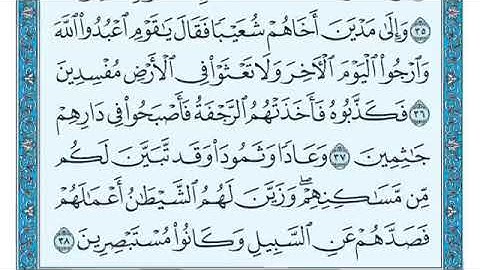 ٣٥ وَإِلَىٰ مَدْيَنَ أَخَاهُمْ شُعَيْبًا فَقَالَ يَٰقَوْمِ ٱعْبُدُوا۟ ٱللَّهَ
وَٱرْجُوا۟ ٱلْيَوْمَ ٱلْءَاخِرَ وَلَا تَعْثَوْا۟ فِى ٱلْأَرْضِ مُفْسِدِينَ
٣٦ فَكَذَّبُوهُ فَأَخَذَتْهُمُ ٱلرَّجْفَةُ فَأَصْبَحُوا۟ فِى دَارِهِمْ
جَٰثِمِينَ ٣٧ وَعَادًا وَثَمُودَا۟ وَقَد تَّبَيَّنَ لَكُم
مِّن مَّسَٰكِنِهِمْ ۖ وَزَيَّنَ لَهُمُ ٱلشَّيْطَٰنُ أَعْمَٰلَهُمْ
فَصَدَّهُمْ عَنِ ٱلسَّبِيلِ وَكَانُوا۟ مُسْتَبْصِرِينَ ٣٨